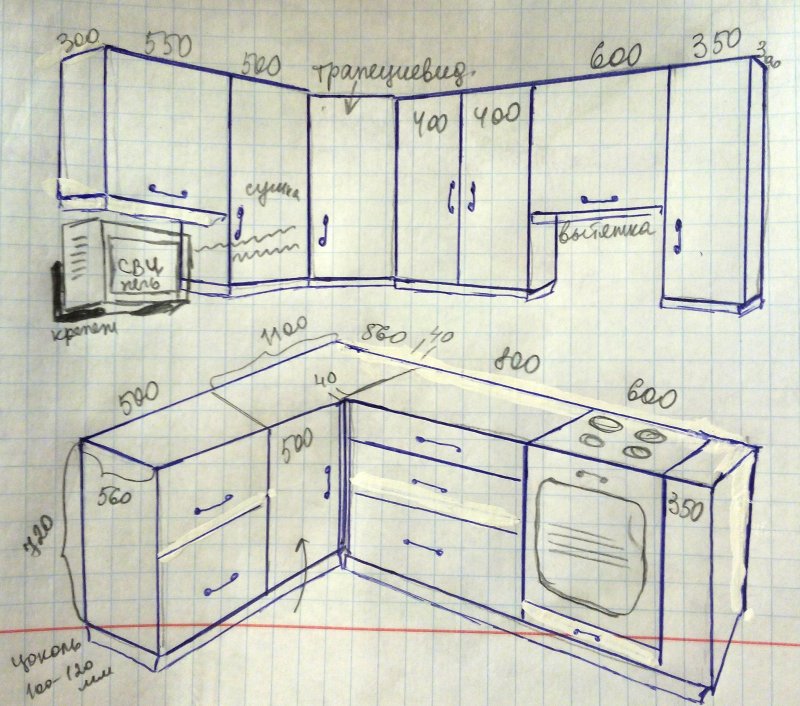 300
550
500
трапециевид.
600
350
300
400
400
сушка
вытяжка
СВЧ
печь
крепеж
1100
860
40
800
500
40
600
500
560
350
720
цоколь
100-120
мм